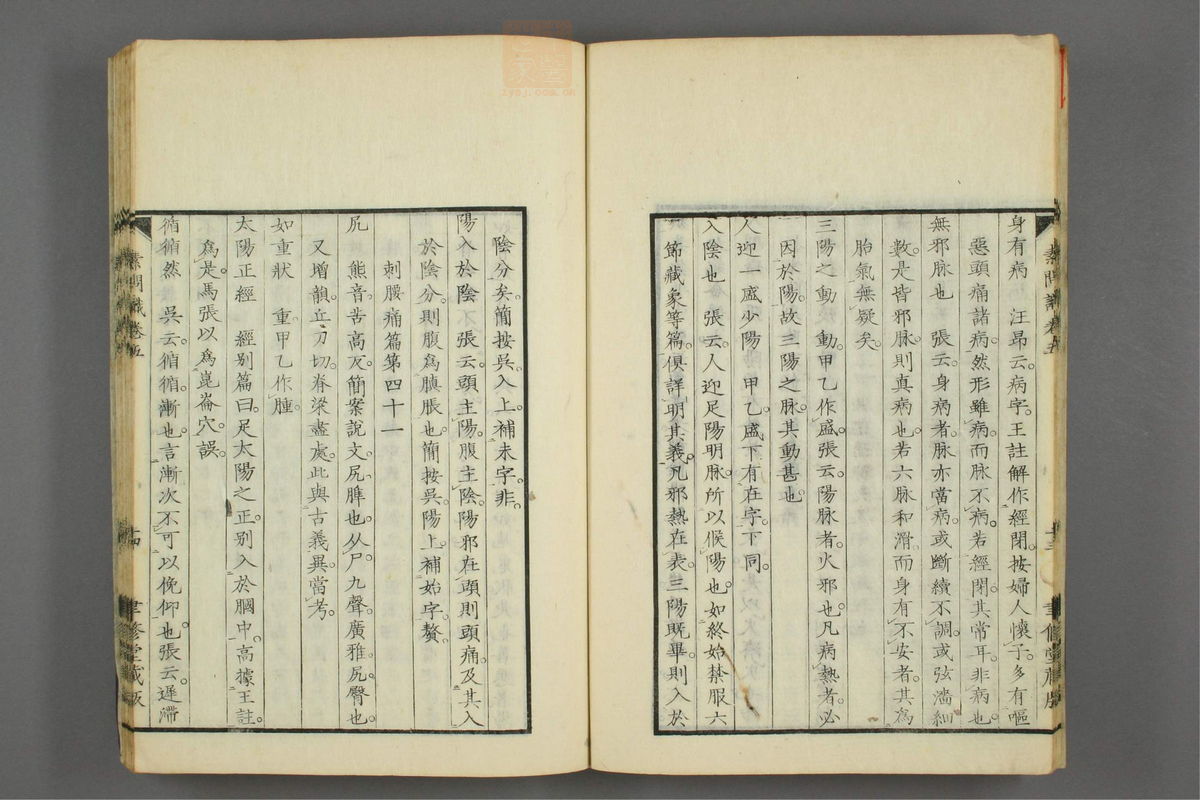 身有病　汪昂云。病字。王註解作經閉。按婦人懷子。多有嘔
惡頭痛諸病。然形雖病而脉不病。若經閉。其常耳。非病也。
無邪脉也　張云。身病者。脉亦當病。或斷續不調。或弦濇細
數。是皆邪脉。則真病也。若六脉和滑。而身有不安者。其為
胎氣無疑矣。
三陽之動　動。甲乙作盛。張云。陽脉者。火邪也。凡病熱者。必
因於陽。故三陽之脉。其動甚也。
人迎一盛少陽　甲乙。盛下有在字。下同。
入陰也　張云。人迎足陽明脉。所以候陽也。如終始禁服六
節藏象等篇。俱詳明其義。凡邪熱在表。三陽既畢。則入於
素問識卷五
十三
聿修堂藏版
陰分矣。簡按吳。入上補未字。非。
陽入於陰　張云。頭主陽。腹主陰。陽邪在頭則頭痛。及其入
於陰分。則腹為䐜脹也。簡按吳。陽上補始字。贅。
刺腰痛篇第四十一
尻　熊音。苦高反。簡案說文。尻。脾也。从尸九聲。廣雅。尻。臀也。
又增韻。丘刀切。脊梁盡處。此與古義異。當考。
如重狀　重。甲乙作腫。
太陽正經　經別篇曰。足太陽之正。別入於膕中。高據王註。
為是。馬張以為崑崙穴。誤。
循循然　吳云。循循。漸也。言漸次不可以俛仰也。張云。遲滯
素問識卷五
十四
聿修堂藏版
zysj.com.cn